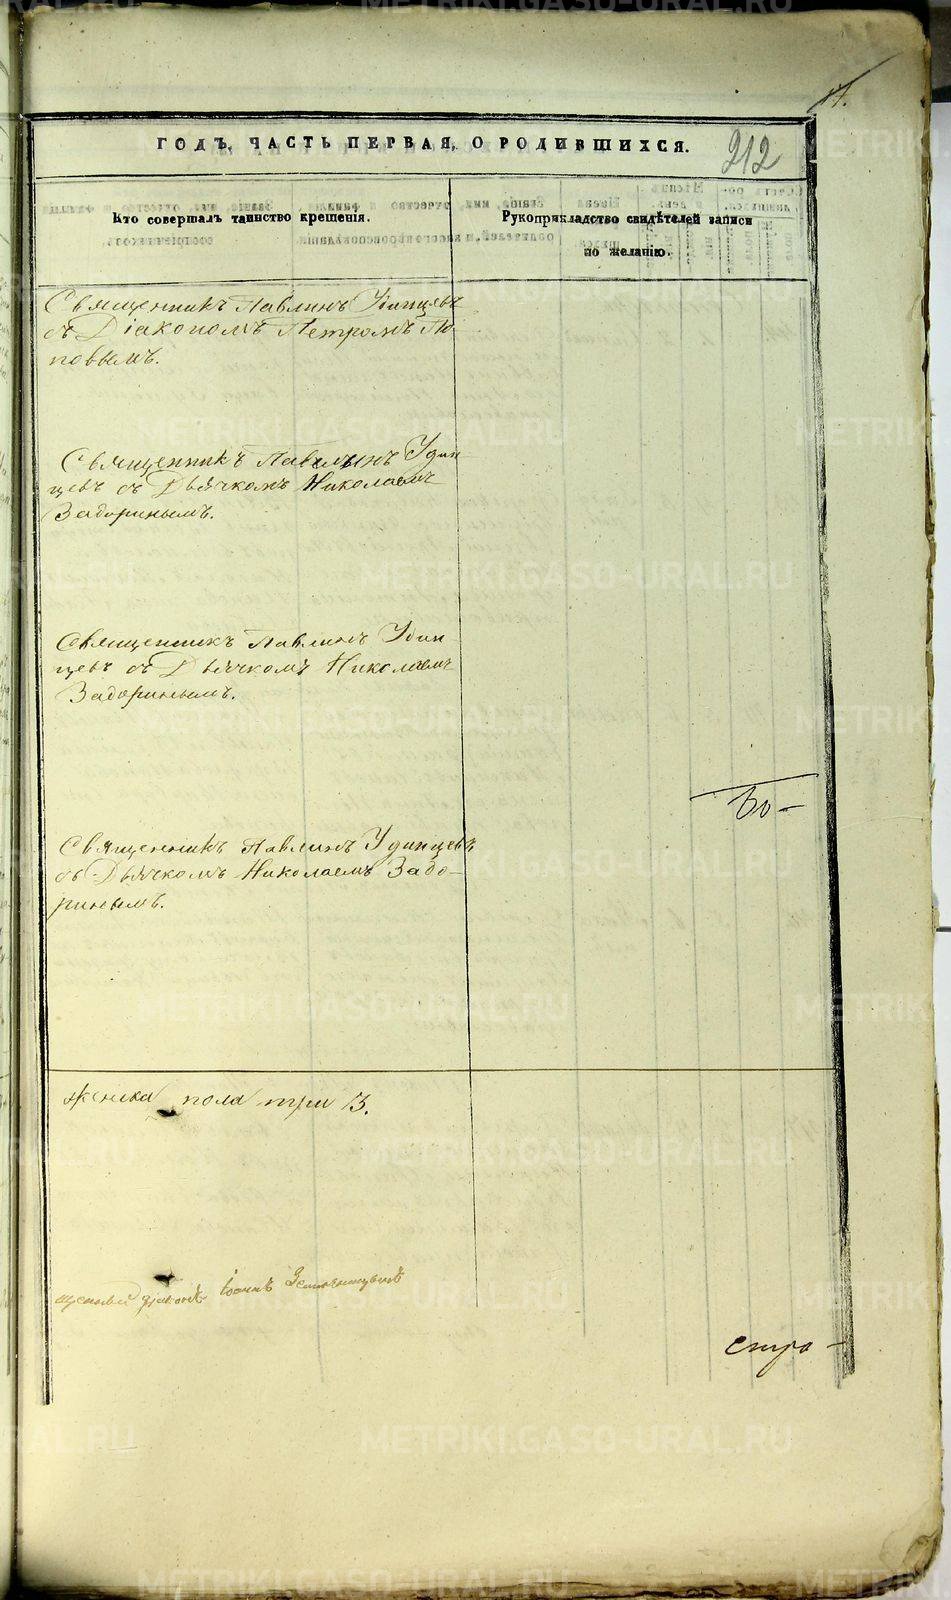 METRIKI.GASO-URAL.RU
17.
ГОДЪ, ЧАСТЬ ПЕРВАЯ, О РОДИВШИХСЯ.
212
Кто совершалъ таинство крещенія.
Рукоприкладство свидѣтелей записи
по желанію.
Священникъ Павлинъ Удинцевъ
съ Діакономъ Петромъ По
повымъ.
Священникъ Павлинъ Удин
цевъ съ Дьячкомъ Николаемъ
Задоринымъ.
Священникъ Павлинъ Удин
цевъ съ Дьячкомъ Николаемъ
Задоринымъ.
Во-
Священникъ Павлинъ Удинцевъ
съ Дьячкомъ Николаемъ Задо-
ринымъ.
женска пола три 3.
Іоаннъ
стра-